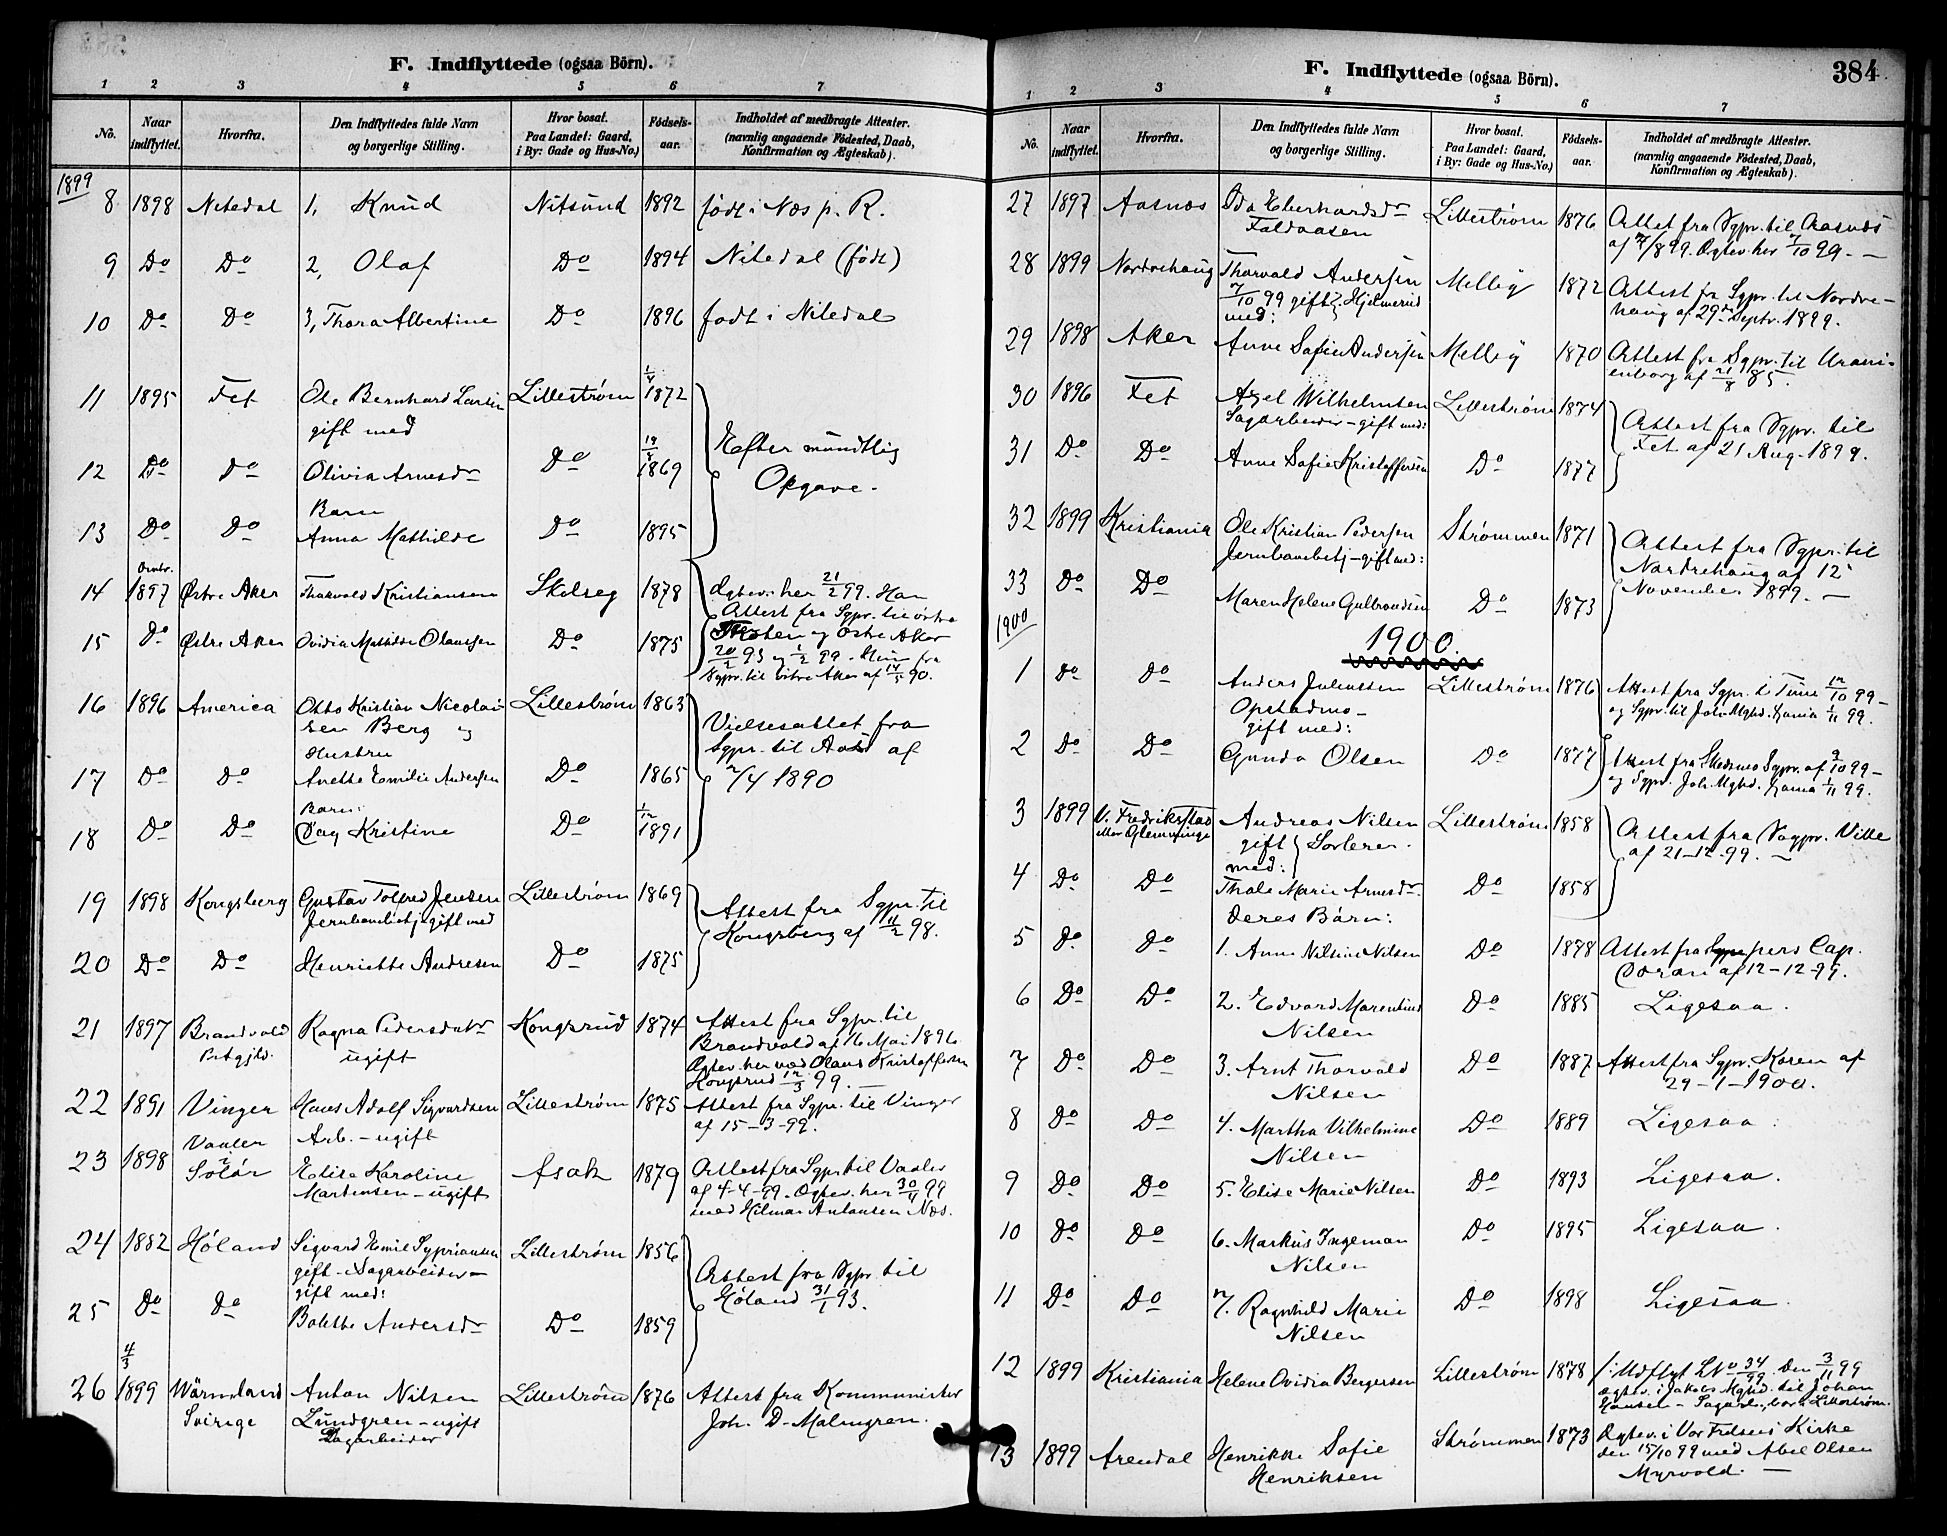 F. Indflyttede (ogsaa Börn).
1 2 3 4 5 6 7
No. Naar indflyttet. Hvorfra. Den Indflyttedes fulde Navn og borgerlige Stilling. Hvor bosat. Paa Landet: Gaard, i By: Gade og Hus-No.) Fødsels-aar. Indholdet af medbragte Attester. (navnlig angaaende Födested, Daab, Konfirmation og Ægteskab).
1899
8 1898 Nitedal 1, Knud Nitsund 1892 født i Næs p. R.
9 Do Do 2, Olaf Do 1894 Nitedal (født)
10 Do Do 3, Thora Albertine Do 1896 født i Nitedal
11 1895 Fet Ole Bernhard Larsen Lillestrøm 1/4 1872
gift med
Efter mundtlig
Opgave.
12 Do Do Olivia Arnesdr Do 1869
Barn
13 Do Do Anna Mathilde Do 1895
14 1897 Østre Aker Thorvald Kristiansen Skelseg 1878 Ægtev. her 21/2 99. Han
Attest fra Sgpr. til østre
15 Do Østre Aker Ovidia Mathilde Olaussen Do 1875
Toten og Østre Aker
20/2 93 og 1/2 99. Hun fra
Sgpr. til østre Aker af 14/5 90.
16 1896 America Otto Kristian Nicolai Lillestrøm 1863
sen Berg og
Hustru
Vielsesattet fra
Sgpr. til Aas af
2/4 1890
17 Do Do Anette Emilie Andersen Do 1865
Barn:
18 Do Do Dag Kristine Do 1/12 1891
19 1898 Kongsberg Gustav Tolfred Jensen Lillestrøm 1869
Jernbanebetj. gift med
Attest fra Sgpr. til
Kongsberg af 11/2 98.
20 Do Do Henriette Andresen Do 1875
21 1897 Brandvold Ragna Pedersdatr Kongsrud 1874 Attest fra Sgpr. til
Prstgjld. ugift Brandvold af 16 Mai 1896
Ægtev. her med Olaus Kristoffersen
Kongsrud 12/3 99.
22 1891 Vinger Hans Adolf Sigvardsen Lillestrøm 1875 Attest fra Sgpr. til Vinger
Arb. - ugift af 15-3-99.
23 1898 Vaaler i Solør Elise Karoline Asak 1879 Attest fra Sgpr. til Vaaler
Martinsen - ugift af 4-4-99. Ægtev. her 30/4 99
med Hilmar Antonsen Næs.
24 1882 Höland Sigvard Emil Sypriansen Lillestrøm 1856
gift - Sagarbeider -
gift med:
Attest fra Sgpr. til
Høland 31/1 93.
25 Do Do Bolette Andersdr Do 1859
4/3
26 1899 Wärmland Anton Nilsen Lillestrøm 1876 Attest fra Kommunister
Sverige Lundgren - ugift Joh. D. Malmgren.
Sagarbeider
F. Indflyttede (ogsaa Börn).
384
1 2 3 4 5 6 7
No. Naar indflyttet. Hvorfra. Den Indflyttedes fulde Navn og borgerlige Stilling. Hvor bosat. Paa Landet: Gaard, i By: Gade og Hus-No.) Fødsels-aar. Indholdet af medbragte Attester. (navnlig angaaende Födested, Daab, Konfirmation og Ægteskab).
27 1897 Aasnæs Ida Eberhardsdr Lillestrøm 1876 Attest fra Sgpr. til Aasnæs
Faldaasen af 7/8 99. Ægtev. her 7/10 99.
28 1899 Nordrehaug Thorvald Andersen Melby 1872 Attest fr. Sgpr. til Nordre-
7/10 99 gift med: Hjelmerud haug af 29de Septr. 1899.
29 1898 Aker Anne Sofie Andersen Melby 1870 Attest fra Sgpr. til Urani-
enborg af 21/8 85.
30 1896 Fet Axel Wilhelmsen Lillestrøm 1874
Sagarbeider - gift med:
Attest fra Sgpr. til
Fet af 21 Aug. 1899.
31 Do Do Anne Sofie Kristoffersen Do 1877
32 1899 Kristiania Ole Kristian Pedersen Strømmen 1871
Jernbanebetj - gift med:
Attest fra Sgpr. til
Nordrehaug af 12
November 1899.
33 Do Do Maren Helene Gulbrandsen Do 1873
1900
1900.
1 Do Do Anders Juliussen Lillestrøm 1876 Attest fra Sgpr. i Tune 12/10 99 -
Opstadmo - og Sgpr. til Joh. Mghd. Xania 1/11 99.
gift med:
2 Do Do Gunda Olsen Do 1877 Attest fra Skedsmo Sgpr. af 9/10 99 -
og Sgpr. Joh. Mghd. Xania 1/11 99.
3 1899 V. Fredrikstad Andreas Nilsen Lillestrøm 1858
eller Glemminge gift med: Sorterer.
Attest fra Sogpr. Ville
af 21-12-99.
4 Do Do Thale Marie Arnesdr. Do 1858
deres Børn:
5 Do Do 1. Anne Nilsine Nilsen Do 1878 Attest fra pers. Cap.
af 12-12-99.
6 Do Do 2. Edvard Marentius Do 1885 Ligesaa.
Nilsen
7 Do Do 3. Arnt Thorvald Do 1887 Attest fra Sgpr. Koren af
Nilsen 29-1-1900.
8 Do Do 4. Martha Vilhelmine Do 1889 Ligesaa.
Nilsen
9 Do Do 5. Elise Marie Nilsen Do 1893 Ligesaa.
10 Do Do 6. Markus Ingeman Do 1895 Ligesaa.
Nilsen
11 Do Do 7. Ragnhild Marie Do 1898 Ligesaa.
Nilsen
12 1899 Kristiania Helene Ovidia Bergersen Lillestrøm 1878 Udflyt. LNo 34/99. Den 3/11 99
Ægtev. i Jakobs Mghd. til Johan
Hansen - Sagarb., bor i Lillestrøm.
13 1899 Arendal Henrikke Sofie Strømmen 1873 Ægtev. i Vor Frelsers Kirke
Henriksen den 15/10 99 med Abel Olsen
Myrvold. -